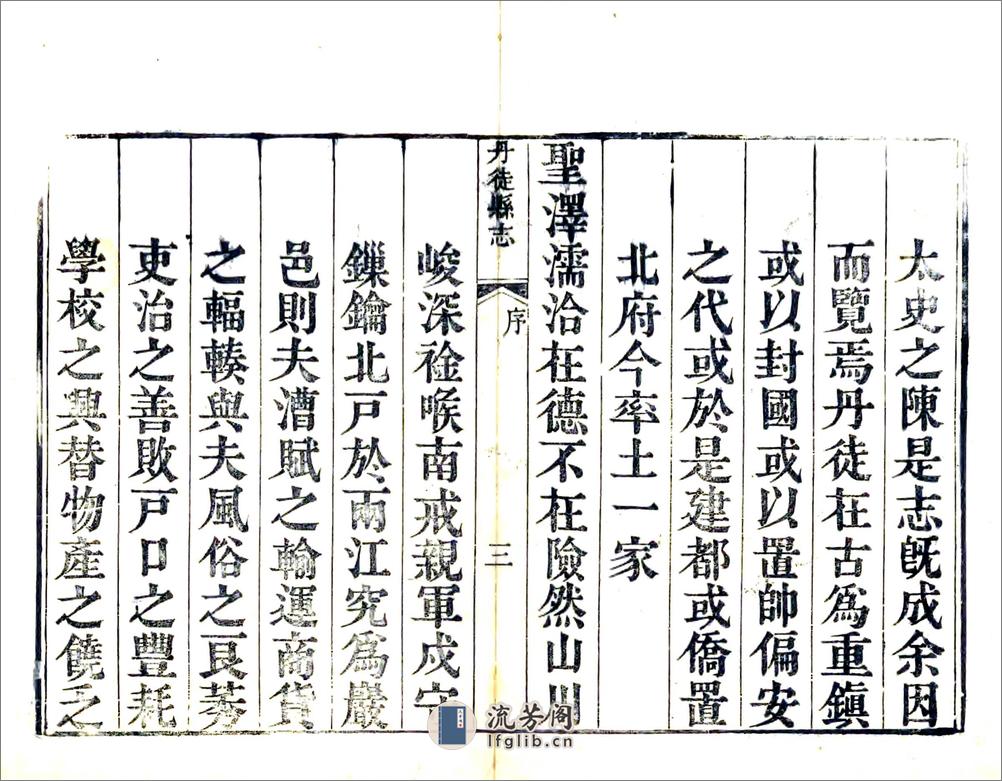 太史之陳是志旣成余因
而覽焉丹徒在古爲重鎮
或以封國或以置帥偏安
之代或於是建都或僑置
北府今率土一家
聖澤濡洽在德不在險然山川
丹徒縣志
序
三
峻深襟喉南戒親軍戍守
鏁鑰北戸於兩江究爲巖
邑則夫漕賦之輸運商貨
之輻輳與夫風俗之良莠
吏治之善敗戸口之豐耗
學校之興替物產之饒乏
流芳阁
lfglib.cn